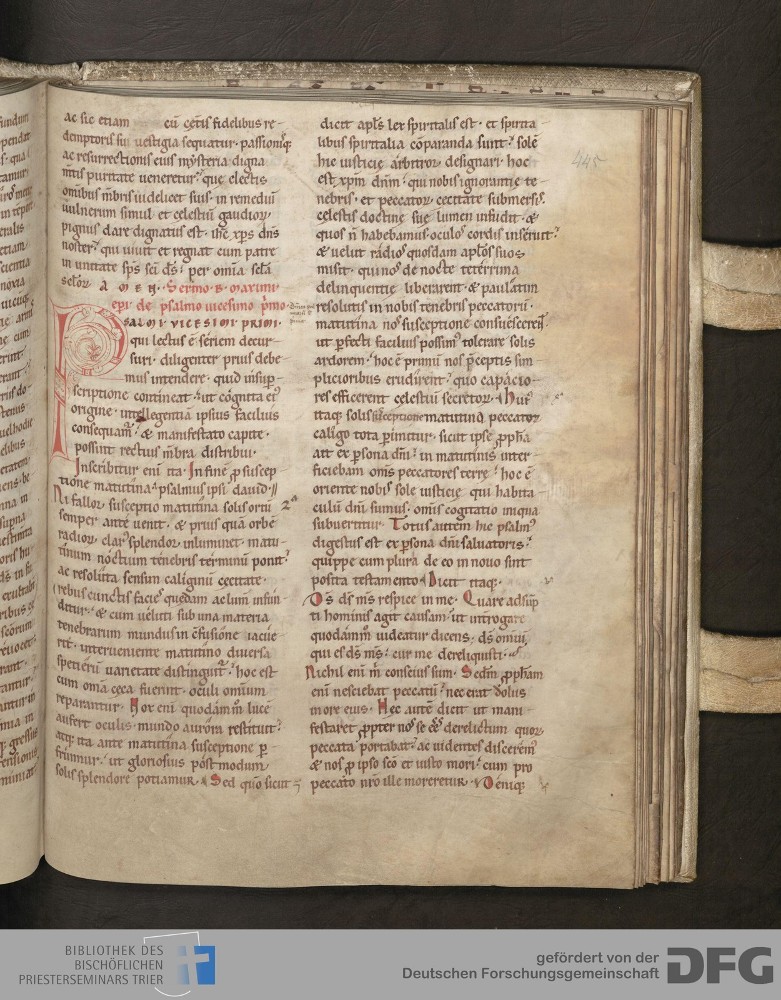 ac sic etiam cū cęteis fidelibus re-
demptoris sui vestigia sequatur. passionisq;
ac resurrectionis eius mẏsteria digna
mtis puritate veneretur. que electis
omībus mēbris uidelicet suis. in remediū
uulnerum simul et celestiū gaudioꝝ.
pignus dare dignatus est. ihc xp̄s dn̄s
noster. qui uiuit et regnat cum patre
in unitate sp̄s sc̄i ds̄. per omīa scl̄a
scl̄oꝝ. A M E N. Sermo. B. maximi
ep̄i de psalmo uicesimo p̄mo.
PSALMI VICESIMI PRIMI.
qui lectus ē seriem decur-
suri. diligenter prius debe-
mus intendere. quid insup-
scriptione contineat. ut cognita ei'
origine. intellegentiā ipsius facilius
consequam̄. & manifestato capite.
possint rectius mēbra distribui.
Inscribitur eni ita. In finē ꝓ suscep-
tione matutina psalmus ipsi dauid.
Ni fallor susceptio matutina solis ortū
semper ante uenit. & prius quā orbē
radioꝝ clar' splendor inluminet. matu-
tinum noctium tenebris terminū ponit.
ac resoluta sensim caliginū cecitate.
rebus cunctis facies quedam ac lum̄ infun-
ditur. & cum veluti sub una materia
tenebrarum mundus in cōfusione iacue-
rit. interueniente matutino diuersa
specierū uarietate distinguit̄. hoc est
cum omīa ceca fuerint. oculi omīum
reparantur. Nox enī quodāmm̄ lucē
aufert oculis. mundo aurora restituit.
atq; ita ante matutina susceptione ꝑ-
fruimur. ut gloriosius postmodum
solis splendore potiamur. Sed quō sicut
dicit apl̄s lex spiritalis est. et spirita-
libus spiritalia cōparanda sunt. solē
hic iusticie arbitror designari. hoc
est xp̄m dn̄m. qui nobis ignorantie te-
nebris. et peccatoꝝ cecitate submersis.
cęlestis doctrine sue lumen infudit. &
quos n̄ habebamus oculos cordis inseruit.
& velut radios quosdam apl̄os suos
misit. qui nos de nocte teterrima
delinquentie liberarent. & paulatim
resolutis in nobis tenebris peccatorū.
matutina nos susceptione consuescerent.
ut ꝑfecti facilius possim' tolerare solis
ardorem. hoc ē primū nos ꝑceptis sim-
plicioribus erudirent. quo capacio-
res efficerent celestiū secretoꝝ. Hui'
itaq; solis susceptione matutina peccatoꝝ
caligo tota ꝑimitur. sicut ipse ꝓph̄a
ait ex ꝑsona dn̄i. in matutinis inter-
ficiebam om̄s peccatores terre. hoc ē
oriente nobis sole iusticie qui habita-
culū dn̄i sumus. omīs cogitatio iniqua
subuertitur. Totus autem hic psalm'
digestus est ex ꝑsona dn̄i saluatoris.
quippe cum plura de eo in nouo sint
posita testamento. Dicit itaq;.
Ds̄ ds̄ m̄s respice in me. Quare adsūp-
ti hominis agit causam. ut introgare
quodāmm̄ uideatur dicens. ds̄ omīū
qui es ds̄ m̄s. cur me dereliquisti.
Nichil enī m̄ conscius sum. Scdm̄ ꝓph̄am
enī nesciebat peccatū. nec erat dolus
in ore eius. Hec autē dicit ut mani-
festaret ꝓpter nos se eē derelictum quoꝝ
peccata portabat. ac uidentes discerem'
& nos ꝓ ipso sc̄o et iusto mori. cum pro
peccato nr̄o ille moreretur. Deniq;
445
BIBLIOTHEK DES
BISCHÖFLICHEN
PRIESTERSEMINARS TRIER
gefördert von der
Deutschen Forschungsgemeinschaft
DFG